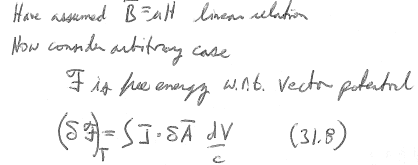 Have assumed B̄=μH linear relation
Now consider arbitrary case
ℱ is free energy w.r.t. vector potential
(δℱ)_T = ∫ J̄·δĀ dV/c (31.8)